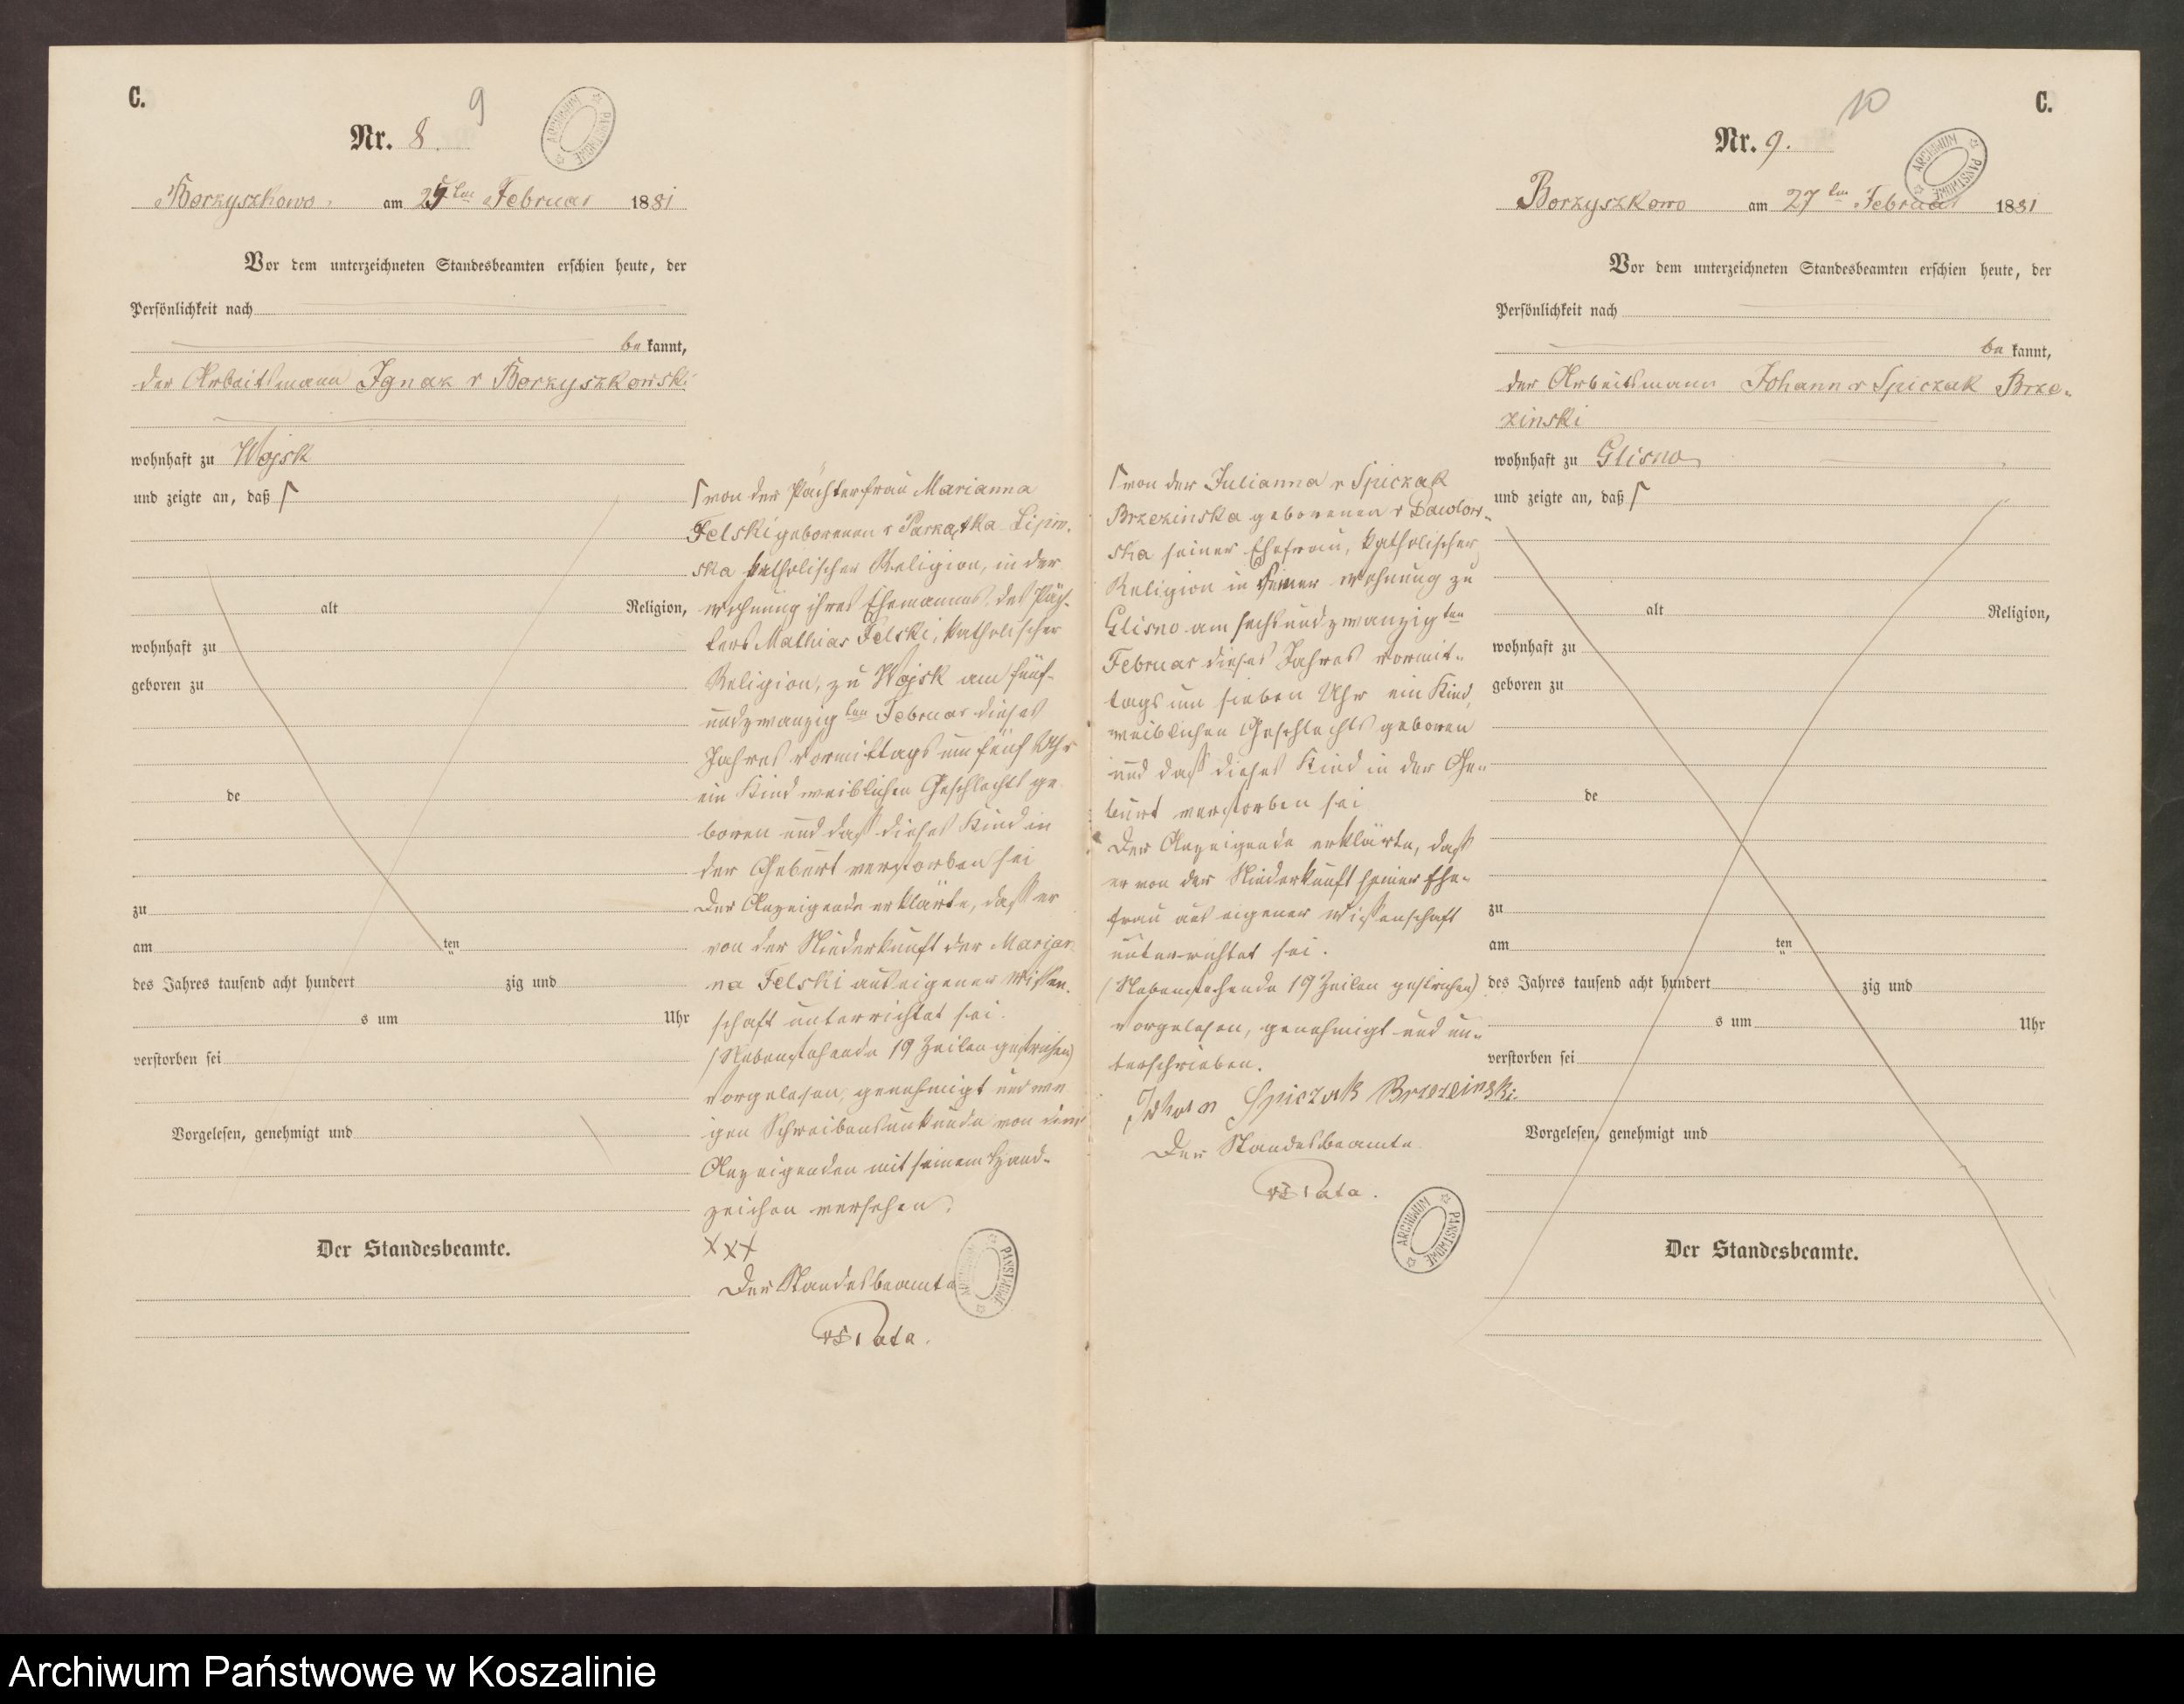 C.
9
ARCHIWUM PAŃSTWOWE
Nr. 8.
Borzyszkowo, am 25ten Februar 1881
Vor dem unterzeichneten Standesbeamten erschien heute, der
Persönlichkeit nach
be kannt,
der Arbeitsmann Ignaz v Borzyszkowski
wohnhaft zu Wojsk
und zeigte an, daß ┌
alt Religion,
wohnhaft zu
geboren zu
de
zu
am ten
des Jahres tausend acht hundert zig und
s um Uhr
verstorben sei
Vorgelesen, genehmigt und
Der Standesbeamte.
┌ von der Pächterfrau Marianna
Felski geborenen v Parzątka Lipin-
ska katholischer Religion, in der
Wohnung ihres Ehemannes, des Päch-
ters Mathias Felski, katholischer
Religion, zu Wojsk am fünf-
undzwanzig ten Februar dieses
Jahres Vormittags um fünf Uhr
ein Kind weiblichen Geschlechts ge
boren und daß dieses Kind in
der Geburt verstorben sei
Der Anzeigende erklärte, daß er
von der Niederkunft der Marjan
na Felski aus eigener Wissen-
schaft unterrichtet sei.
(Nebenstehende 19 Zeilen gestrichen)
Vorgelesen, genehmigt und we
gen Schreibensunkunde von dem
Anzeigenden mit seinem Hand-
zeichen versehen.
XXX
Der Standesbeamte
ARCHIWUM PAŃSTWOWE
C.
10
Nr. 9.
ARCHIWUM PAŃSTWOWE
Borzyszkowo am 27 ten Februar 1881
Vor dem unterzeichneten Standesbeamten erschien heute, der
Persönlichkeit nach
be kannt,
der Arbeitsmann Johann v Spiczak Brze-
zinski
wohnhaft zu Glisno
und zeigte an, daß ┌
alt Religion,
wohnhaft zu
geboren zu
de
zu
am ten
des Jahres tausend acht hundert zig und
s um Uhr
verstorben sei
Vorgelesen, genehmigt und
Der Standesbeamte.
┌ von der Julianna v Spiczak
Brzezinska geborenen v
ska seiner Ehefrau, katholischer
Religion in seiner Wohnung zu
Glisno am sechsundzwanzig ten
Februar dieses Jahres Vormit-
tags um sieben Uhr ein Kind,
weiblichen Geschlechts geboren
und daß dieses Kind in der Ge-
burt verstorben sei
Der Anzeigende erklärte, daß
er von der Niederkunft seiner Ehe-
frau aus eigener Wissenschaft
unterrichtet sei.
(Nebenstehende 19 Zeilen gestrichen)
Vorgelesen, genehmigt und un-
terschrieben.
Johan Spiczak Brzezinski
Der Standesbeamte
ARCHIWUM PAŃSTWOWE
Archiwum Państwowe w Koszalinie